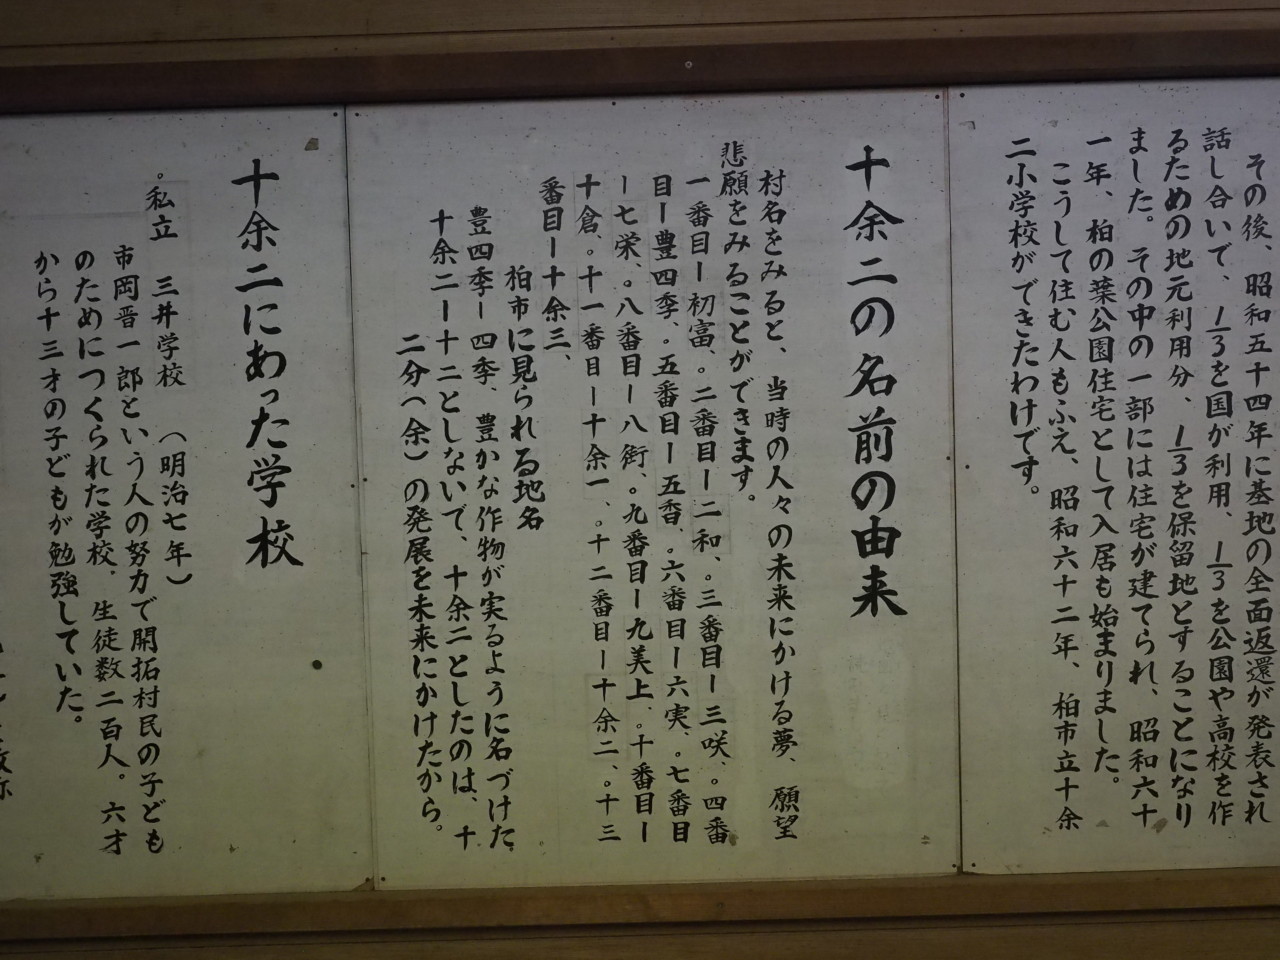 その後、昭和五十四年に基地の全面返還が発表され
話し合いで、1/3を国が利用、1/3を公園や高校を作
るための地元利用分、1/3を保留地とすることになり
ました。その中の一部には住宅が建てられ、昭和六十
一年、柏の葉公園住宅として入居も始まりました。
こうして住む人もふえ、昭和六十二年、柏市立十余
二小学校ができたわけです。
十余二の名前の由来
村名をみると、当時の人々の未来にかける夢、願望
悲願をみることができます。
一番目ー初富、。二番目ー二和、。三番目ー三咲、。四番
目ー豊四季、。五番目ー五香、。六番目ー六実、。七番目
ー七栄、。八番目ー八街、。九番目ー九美上、。十番目ー
十倉、。十一番目ー十余一、。十二番目ー十余二、。十三
番目ー十余三、
柏市に見られる地名
豊四季ー四季、豊かな作物が実るように名づけた
十余二ー十二としないで、十余二としたのは、十
二分(余)の発展を未来にかけたから。
十余二にあった学校
。私立 三井学校 (明治七年)
市岡晋一郎という人の努力で開拓村民の子ども
のためにつくられた学校、生徒数二百人。六才
から十三才の子どもが勉強していた。